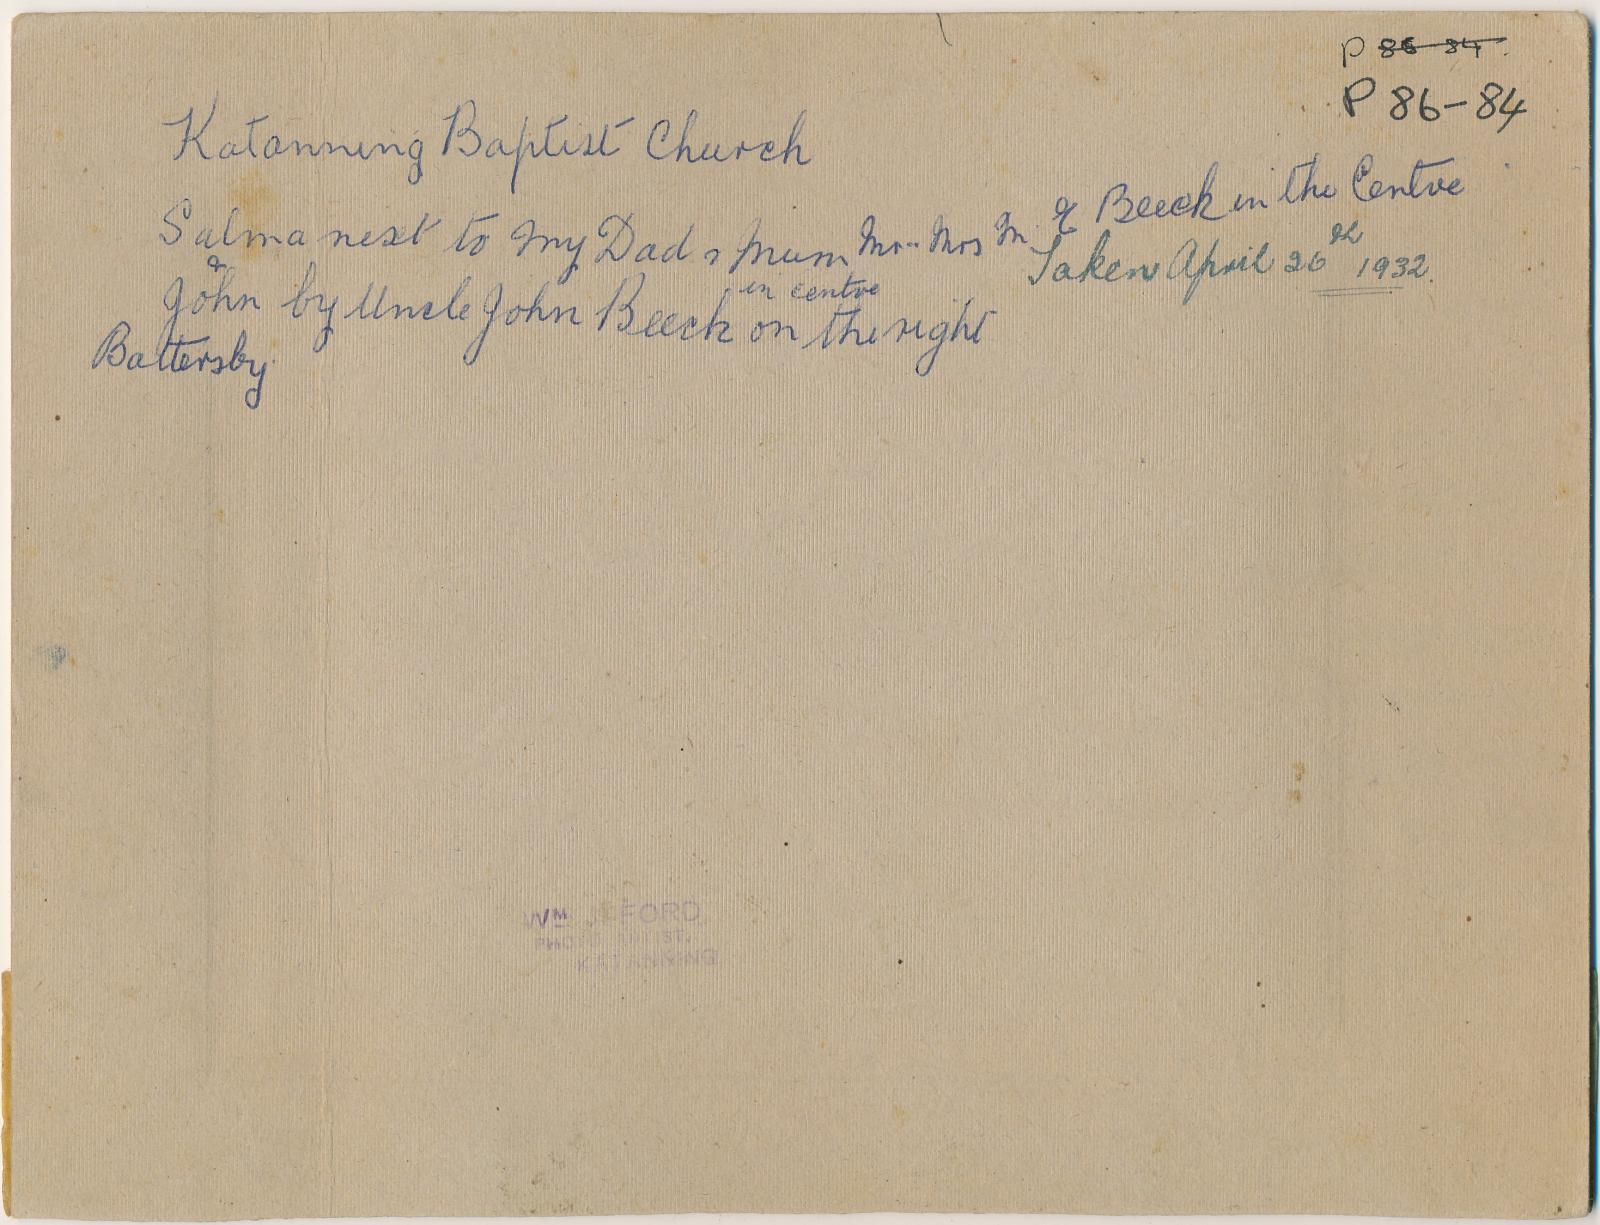 P 86 84.
P 86-84
Katanning Baptist Church
Salma next to my Dad & Mum Mr & Mrs M. & Beeck in the Centre
Taken April 26th 1932.
& John by Uncle John Beeck in centre on the right
Battersby
WM J. FORD
PHOTO ARTIST.
KATANNING